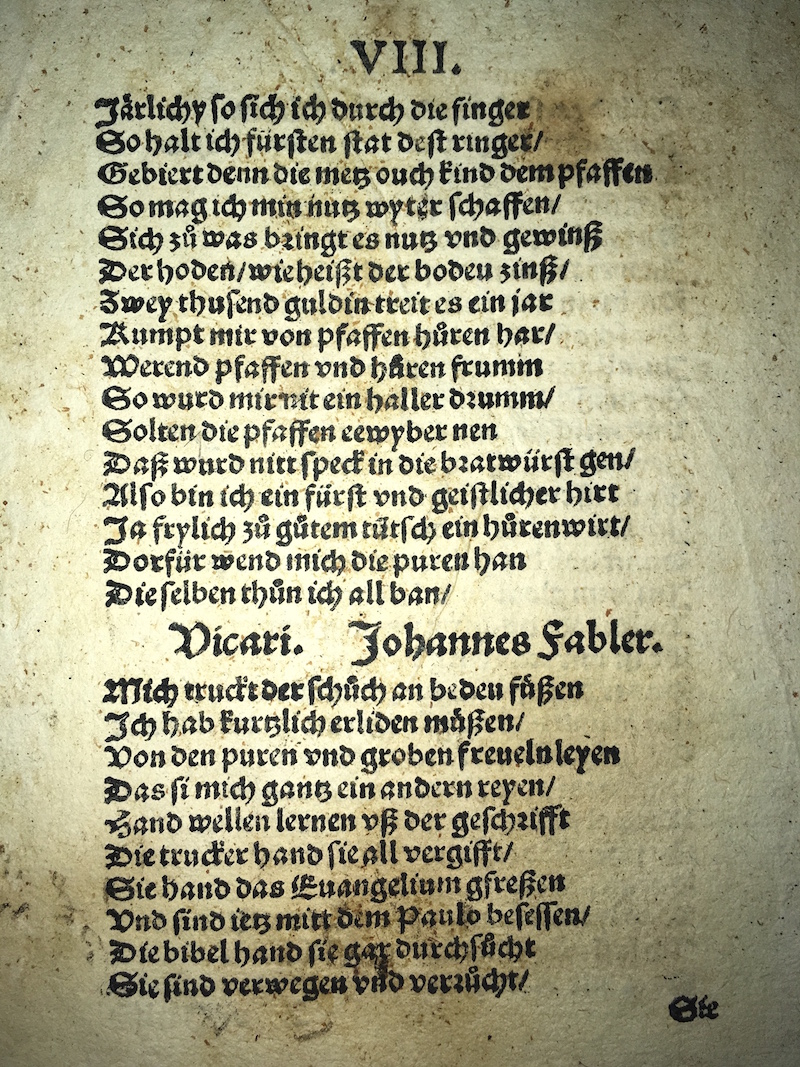 VIII.
Jårlichy so sich ich durch die finger
So halt ich fürsten stat dest ringer/
Gebiert denn die metz ouch kind dem pfaffen
So mag ich min nutz wyter schaffen/
Sich zů was bringt es nutz vnd gewinß
Der hoden/wie heißt der boden zinß/
Zwey thusend guldin treit es ein jar
Kumpt mir von pfaffen hůren har/
Werend pfaffen vnd hůren frumm
So wurd mir nit ein haller drumm/
Solten die pfaffen eewyber nen
Daß wurd nitt speck in die bratwürst gen/
Also bin ich ein fürst vnd geistlicher hirt
Ja frylich zů gůtem tütsch ein hůrenwirt/
Dorfür wend mich die puren han
Die selben thůn ich all ban/
Vicari. Johannes Fabler.
Mich truckt der schůch an beden fůßen
Ich hab kurtzlich erliden můßen/
Von den puren vnd groben freueln leyen
Das si mich gantz ein andern reyen/
Hand wellen lernen vß der geschrifft
Die trucker hand sie all vergifft/
Sie hand das Euangelium gfreßen
Vnd sind ietz mitt dem Paulo besessen/
Die bibel hand sie gar durchsůcht
Sie sind verwegen vnd verrůcht/
Sie